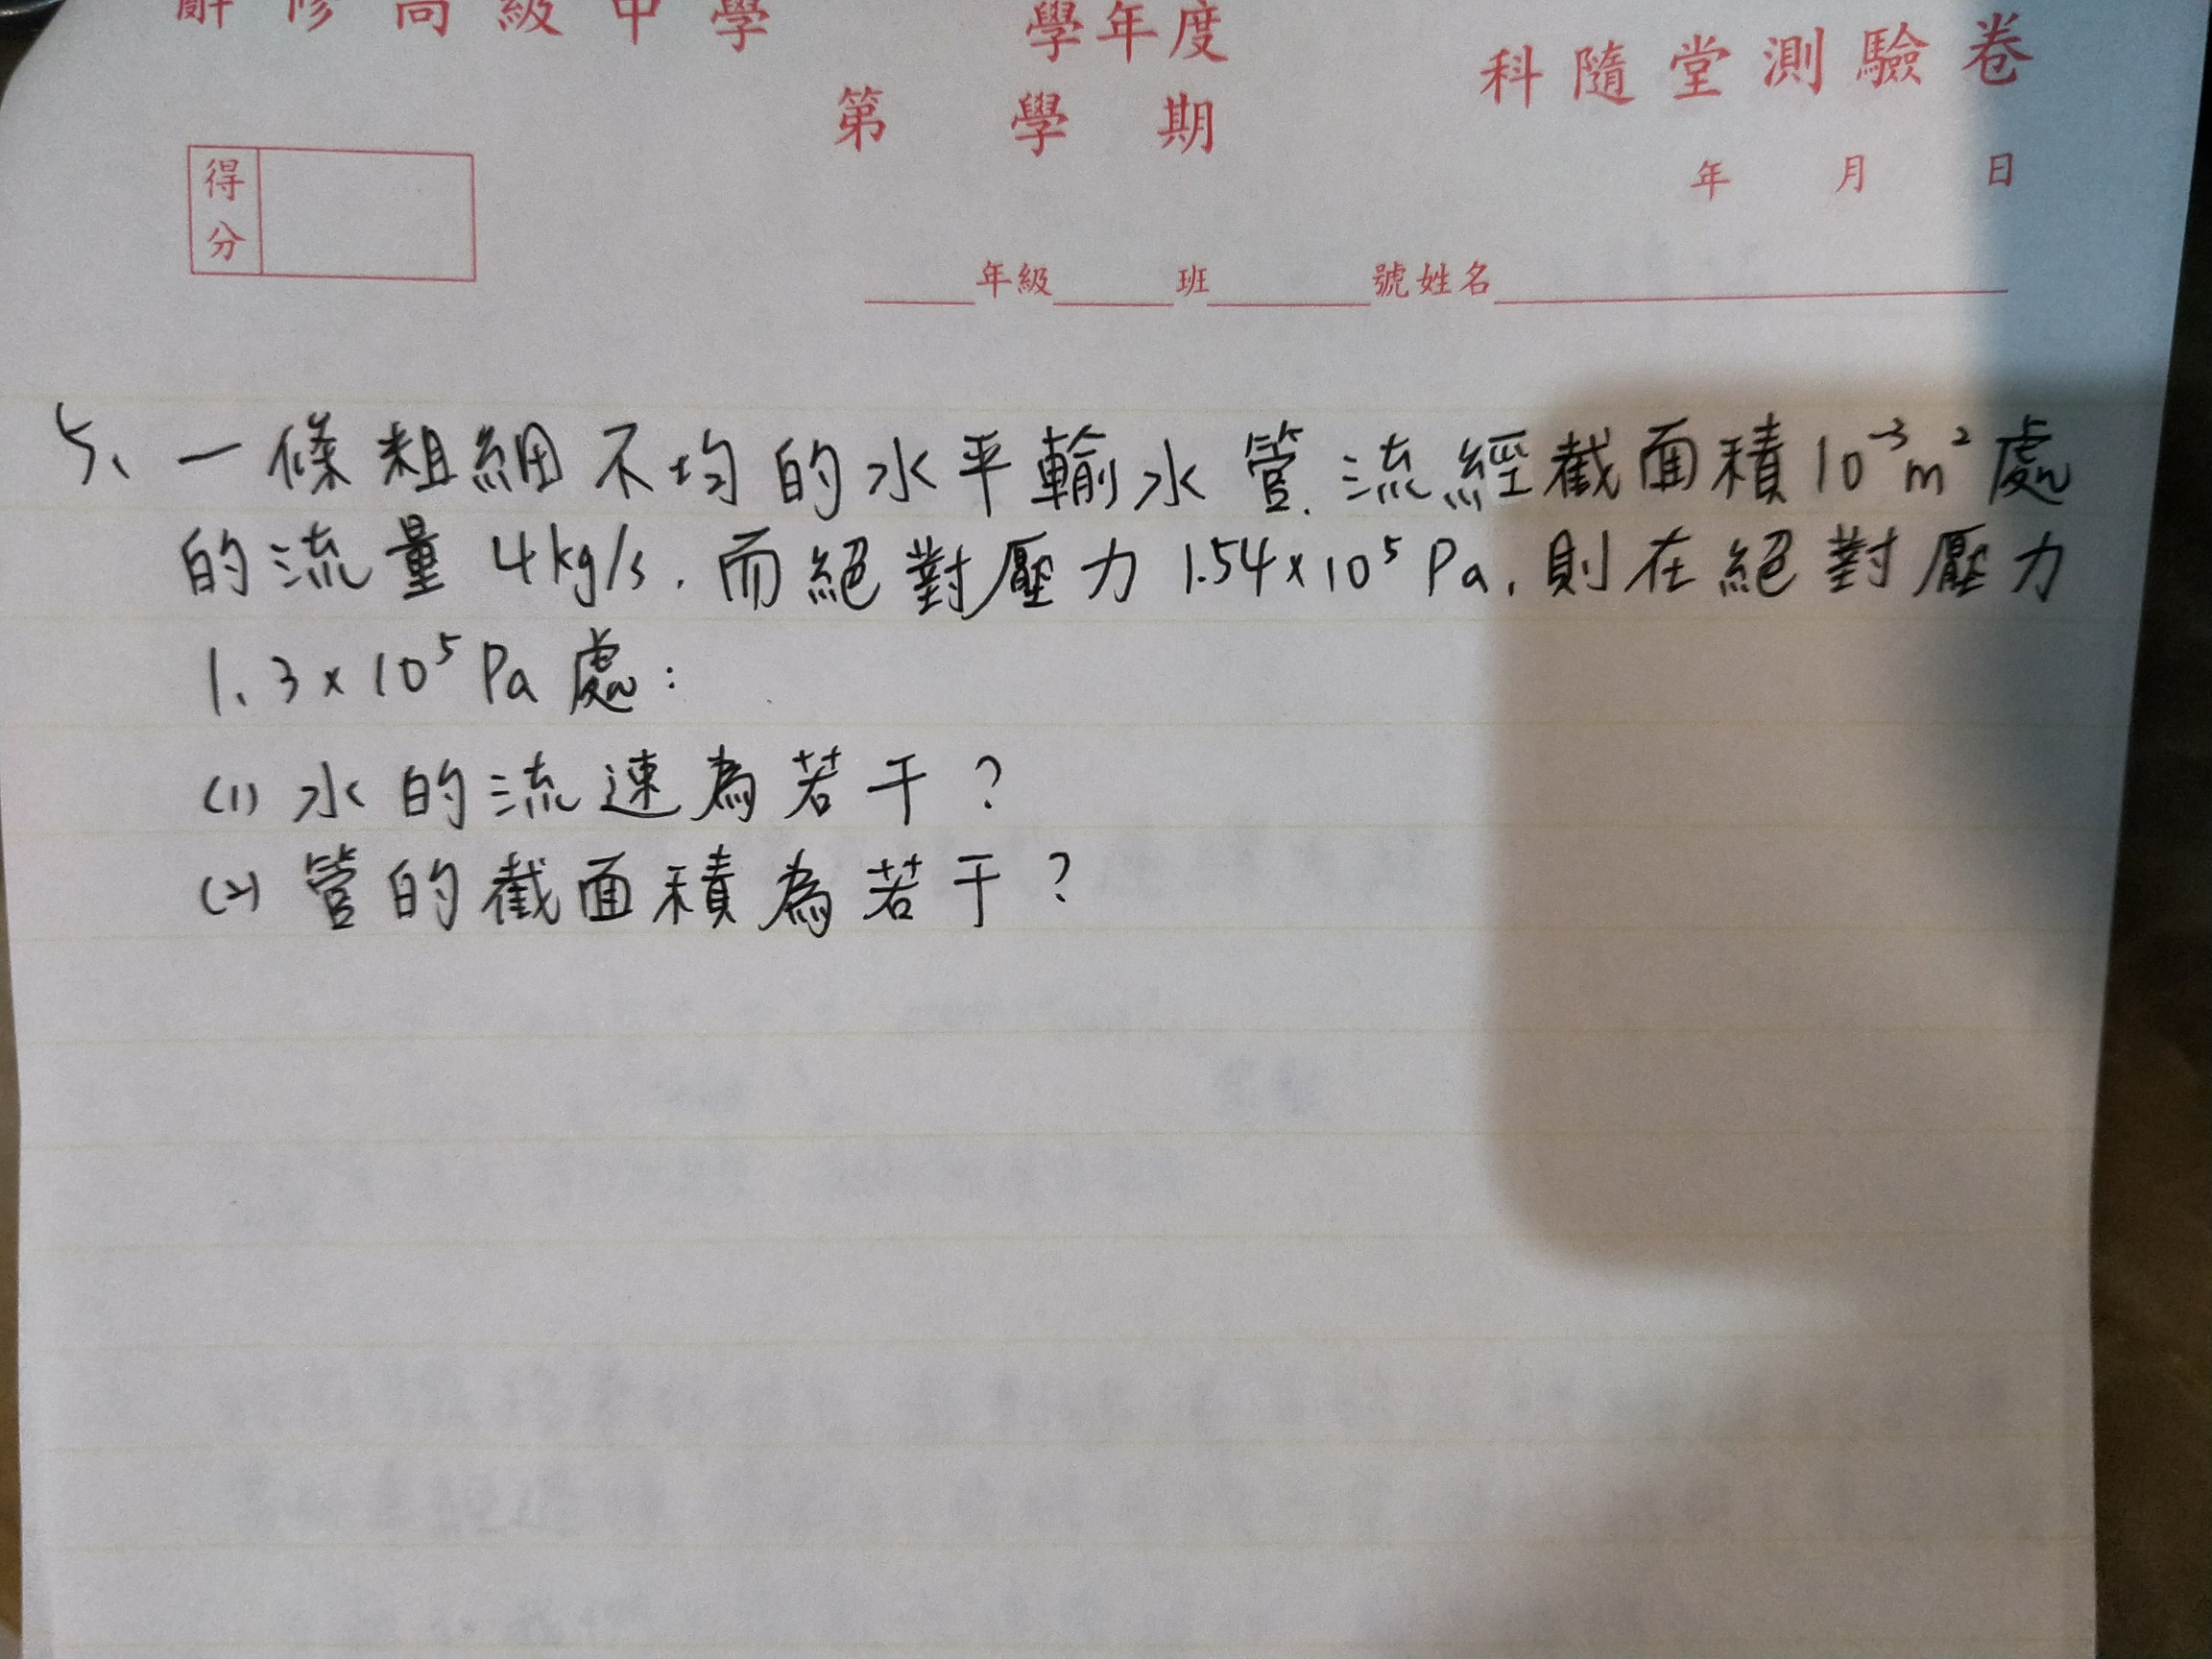 修高級中學 學年度
第 學 期
科隨堂測驗卷
年 月 日
得
分
年級 班 號姓名
5、一條粗細不均的水平輸水管,流經截面積10⁻³m²處
的流量4kg/s,而絕對壓力1.54×10⁵Pa,則在絕對壓力
1.3×10⁵Pa處:
(1)水的流速為若干?
(2)管的截面積為若干?